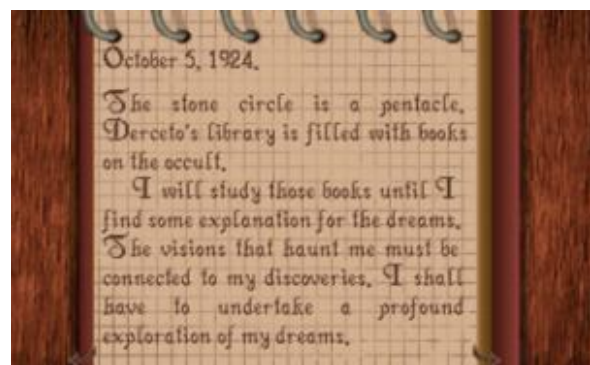 October 5, 1924.
The stone circle is a pentacle.
Derceto's library is filled with books
on the occult.
I will study those books until I
find some explanation for the dreams.
The visions that haunt me must be
connected to my discoveries. I shall
have to undertake a profound
exploration of my dreams.